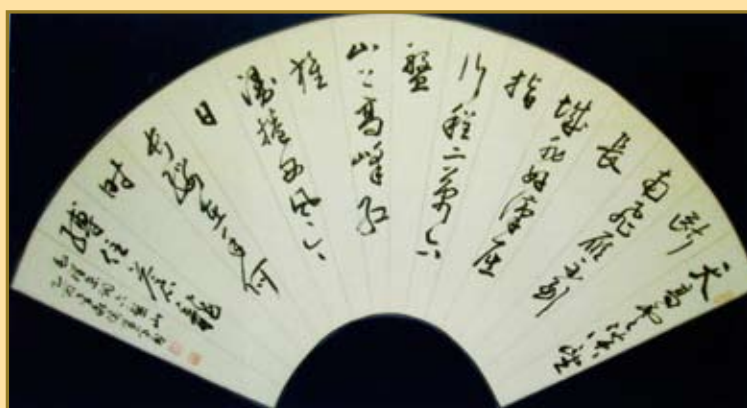 天高雲淡望
断
南飛雁不到
長
城非好漢屈
指
行程二萬六
盤
山上高峰红
旗
漫捲西风今
日
长缨在手何
时
缚住苍龍